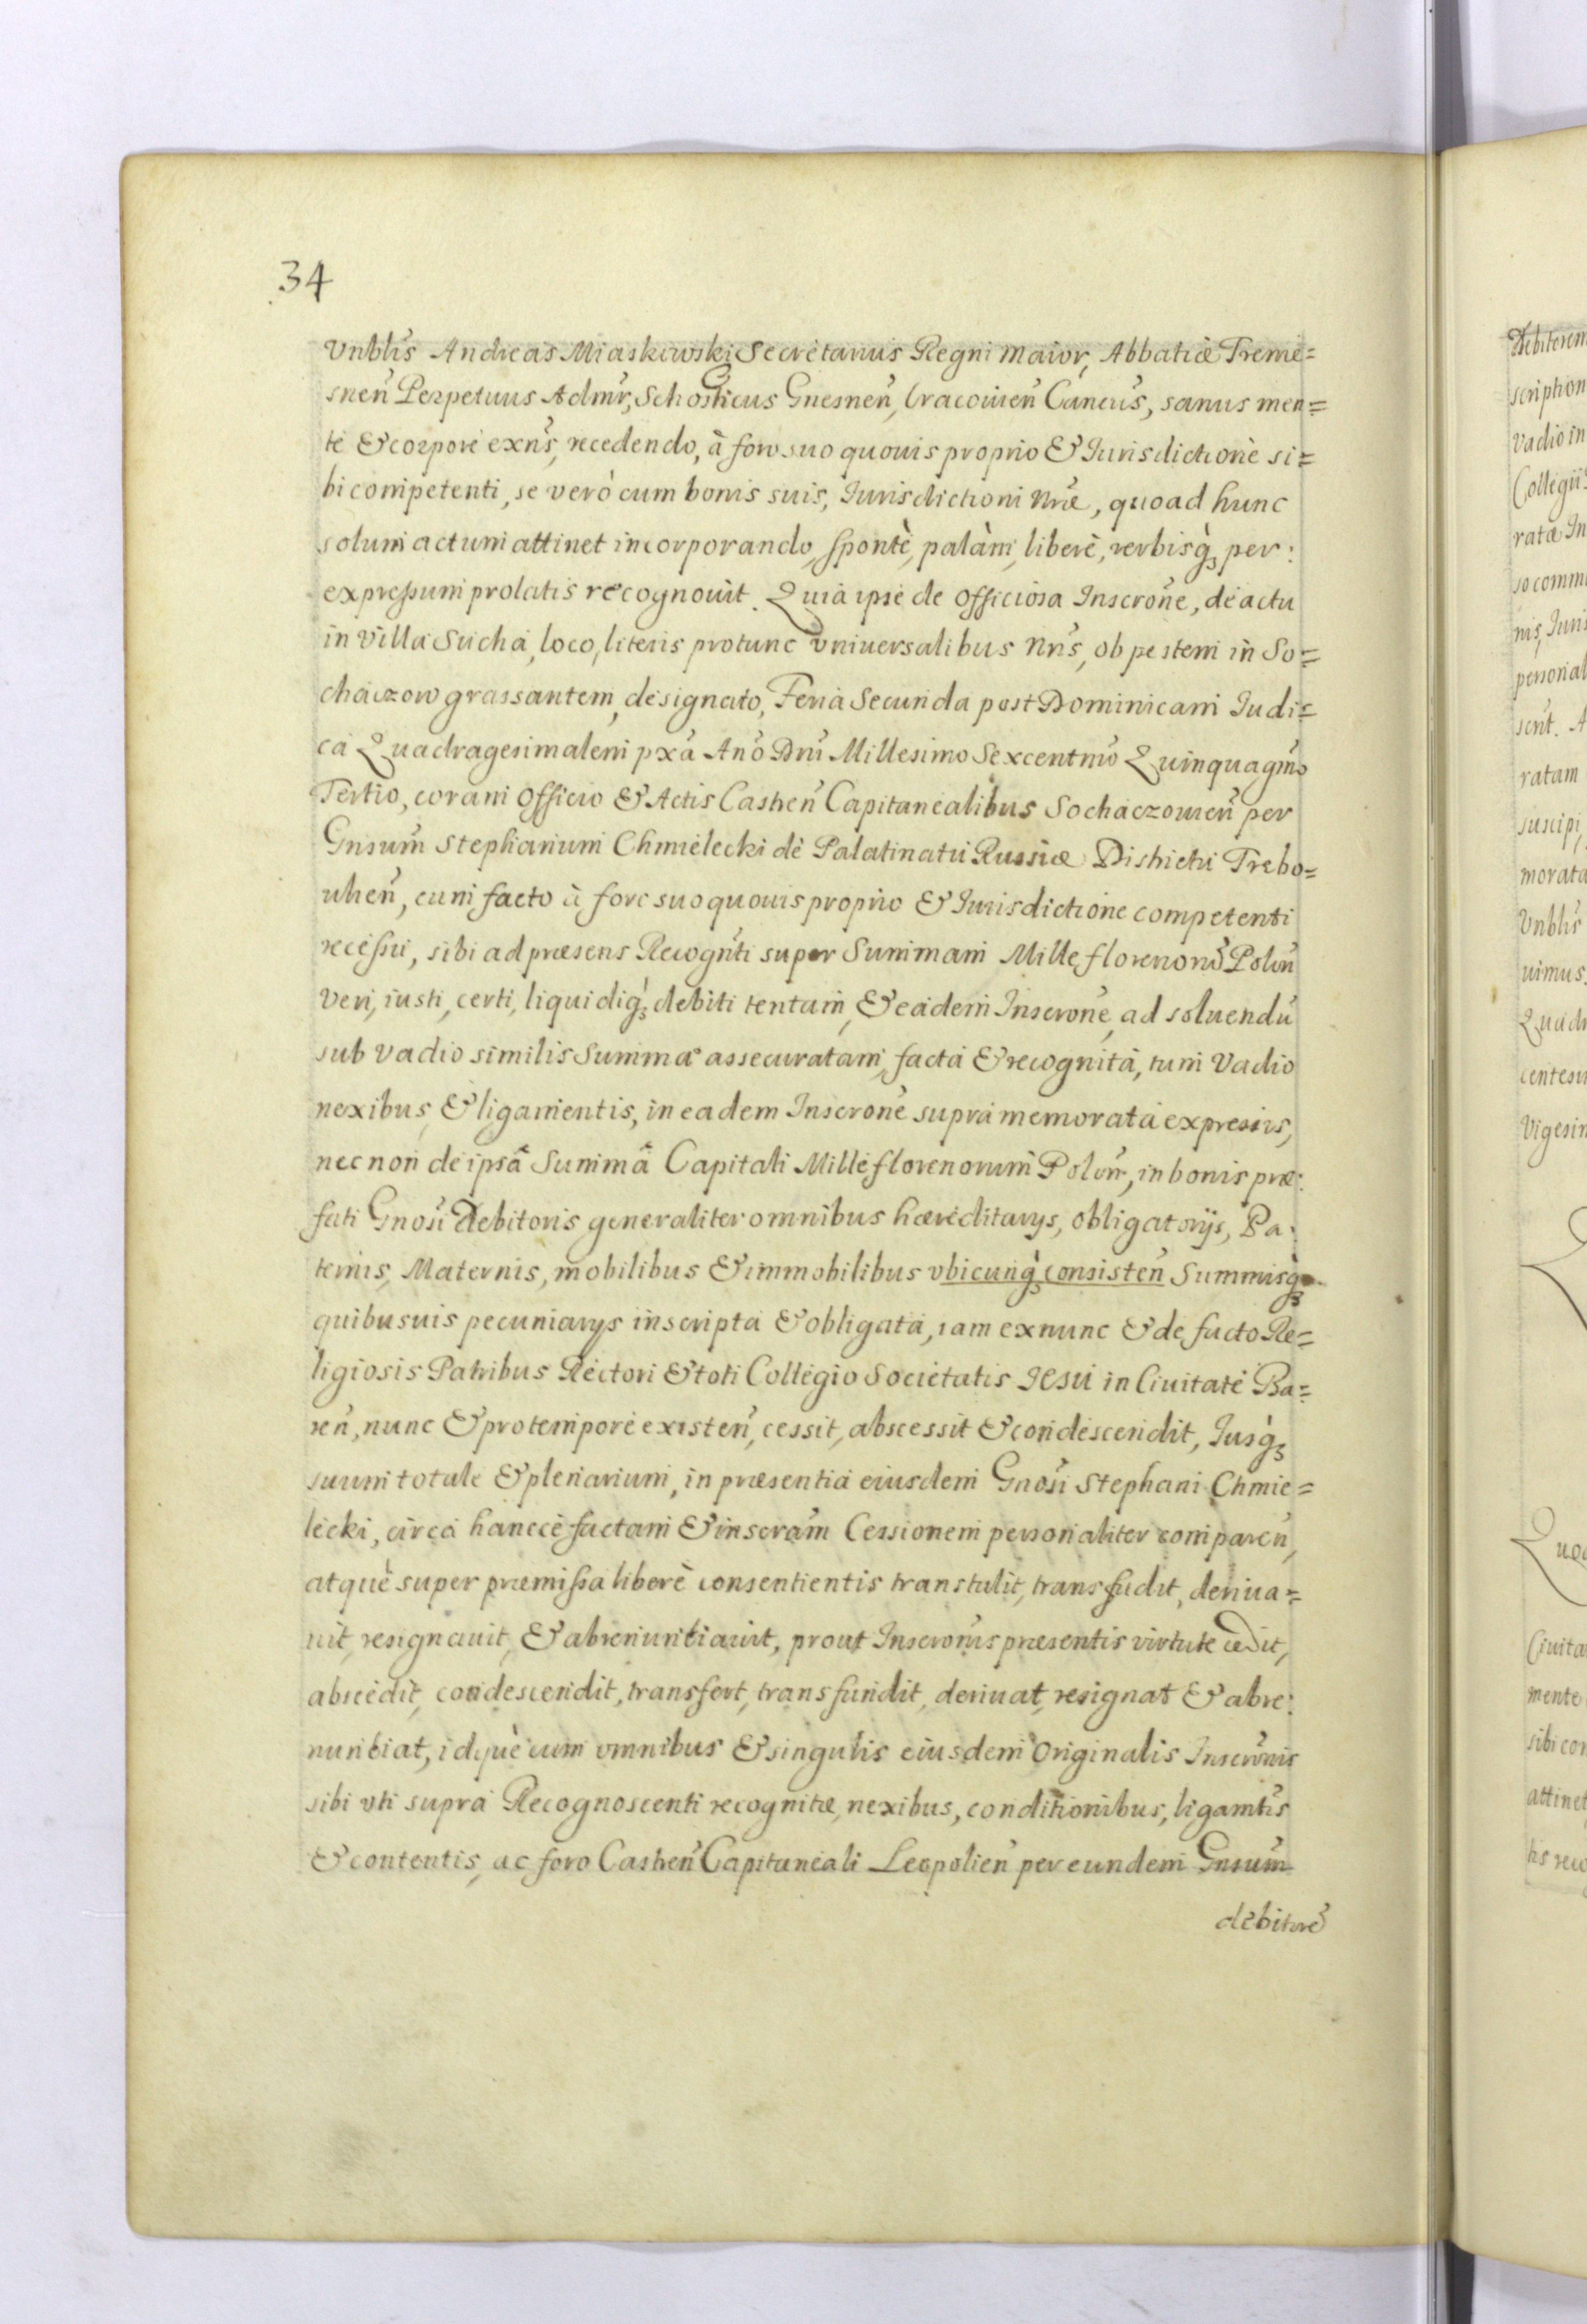 34
Vnblis Andreas Miaskowski Secretarius Regni Maior, Abbatiæ Treme=
snen̄ Perpetuus Admr̄, Scholicus Gnesnen̄, Cracouien̄ Cancus̄, sanus men=
te & corpore exn̄s, recedendo, à foro suo quouis proprio & Iurisdictione si=
bi competenti, se verò cum bonis suis, Iurisdictioni Nrǣ, quoad hunc
solum actum attinet incorporando, spontè, palàm, liberè, verbisq̀ꝫ per:
expressum prolatis recognouit. Quia ipse de officiosa Inscrone, de actu
in Villa Sucha, loco, literis protunc Vniuersalibus Nrīs, ob pestem in So=
chaczow grassantem, designato, Feria Secunda post Dominicam Iudi=
ca Quadragesimalem pxā Anō Dnī Millesimo Sexcentmō Quinquagmō
Tertio, coram Officio & Actis Castren̄ Capitanealibus Sochaczouien̄ per
Gnsum̄ Stephanum Chmielecki de Palatinatu Russiæ Districtu Trebo=
ulien̄, cum facto à foro suo quouis proprio & Iurisdictione competenti
recessu, sibi ad præsens Recognti super Summam Mille florenorū Polon̄
Veri, iusti, certi, liquidiq̀ꝫ debiti tentam, & eadem Inscrone, ad soluendū
sub vadio similis Summæ assecuratam, facta & recognita, tum Vadio
nexibus, & ligamentis, in eadem Inscrone supra memorata expressis,
nec non de ipsâ Summâ Capitali Mille florenorum Polon̄, in bonis præ:
fati Gnosi Debitoris generaliter omnibus hæreditarys, obligatorijs, Pa:
ternis, Maternis, mobilibus & immobilibus vbicunq̀ꝫ consisten̄ Summisq̀ꝫ
quibusuis pecuniarys inscripta & obligata, iam ex nunc & de facto Re=
ligiosis Patribus Rectori & toti Collegio Societatis Iesu in Ciuitate Ba=
ren̄, nunc & pro tempore existen̄, cessit, abscessit & condescendit, Iusq̀ꝫ
suum totale & plenarium, in præsentia eiusdem Gnosi Stephani Chmie=
lecki, circa hancce factam & inscram̄ Cessionem personaliter comparen̄,
atquè super præmissa liberè consentientis transtulit, transfudit, deriua=
uit, resignauit, & abrenuntiauit, prout Inscronis præsentis virtute cedit,
abscedit, condescendit, transfert, transfundit, deriuat, resignat & abre:
nuntiat, idquè cum omnibus & singulis eiusdem Originalis Inscronis
sibi vti supra Recognoscenti recognitæ, nexibus, conditionibus, ligamtis
& contentis, ac foro Castren̄ Capitaneali Leopolien̄ per eundem Gnsum̄
debitorē